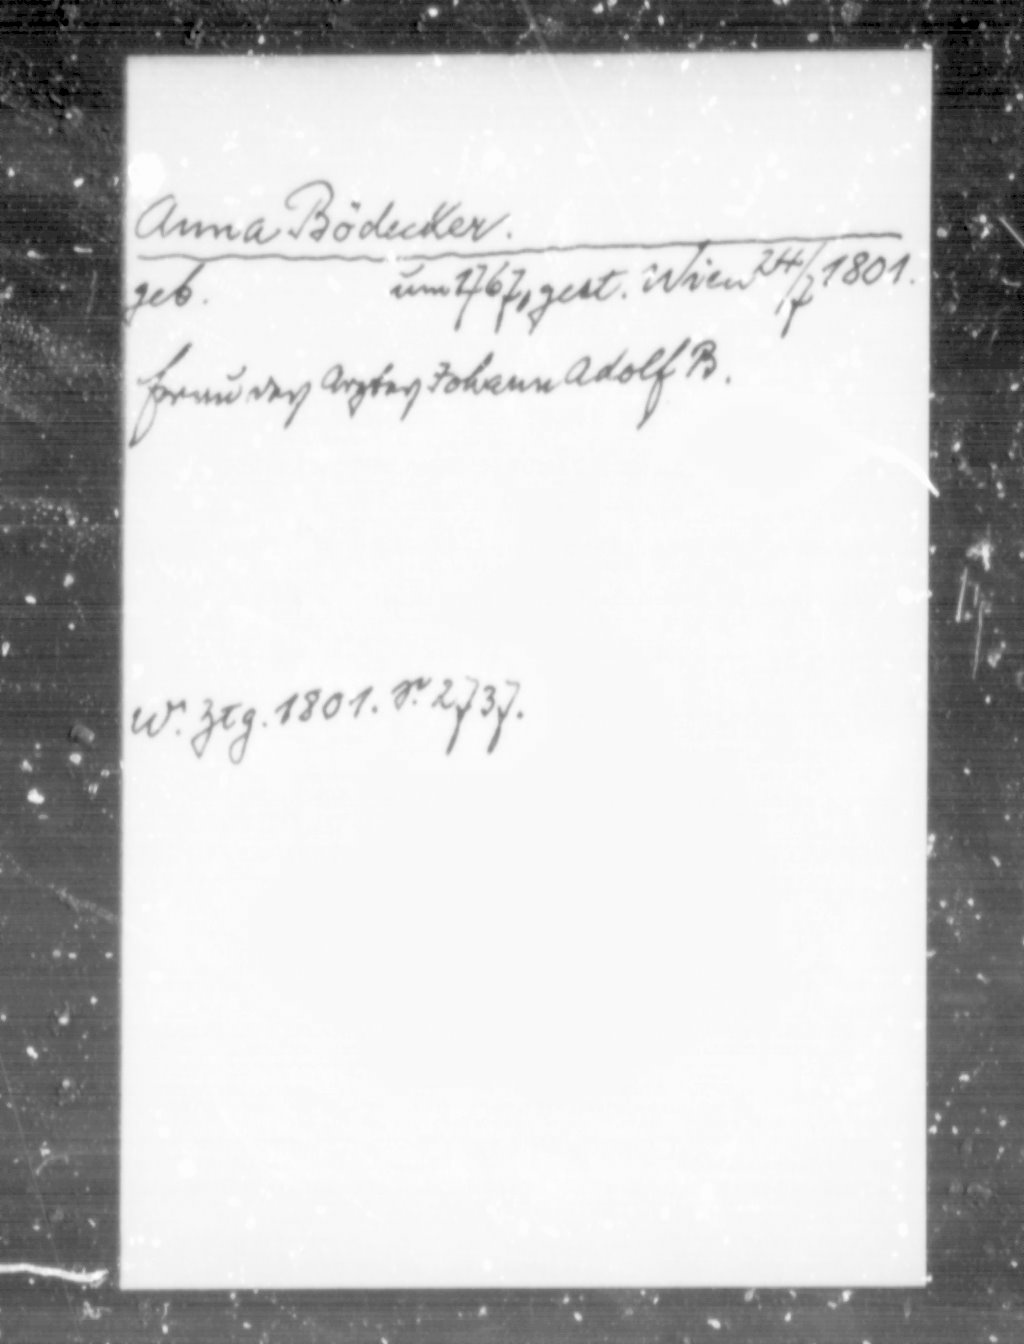 Anna Bödecker.
geb. um 1767, gest. Wien 24/7 1801.
Frau des Arztes Johann Adolf B.
W. Ztg. 1801. S. 2737.